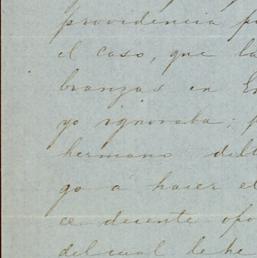 providencia p
el caso, que la
branzas en E
yo ignoraba; p
hermano del
go a hacer el
ce decente opo
del cual debe